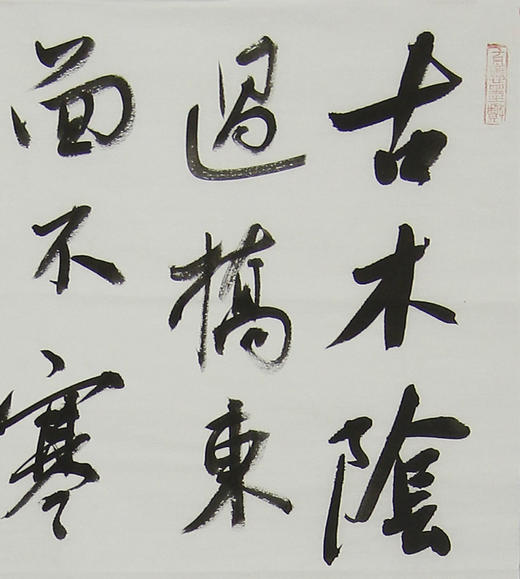 古木陰
過橋東
面不寒